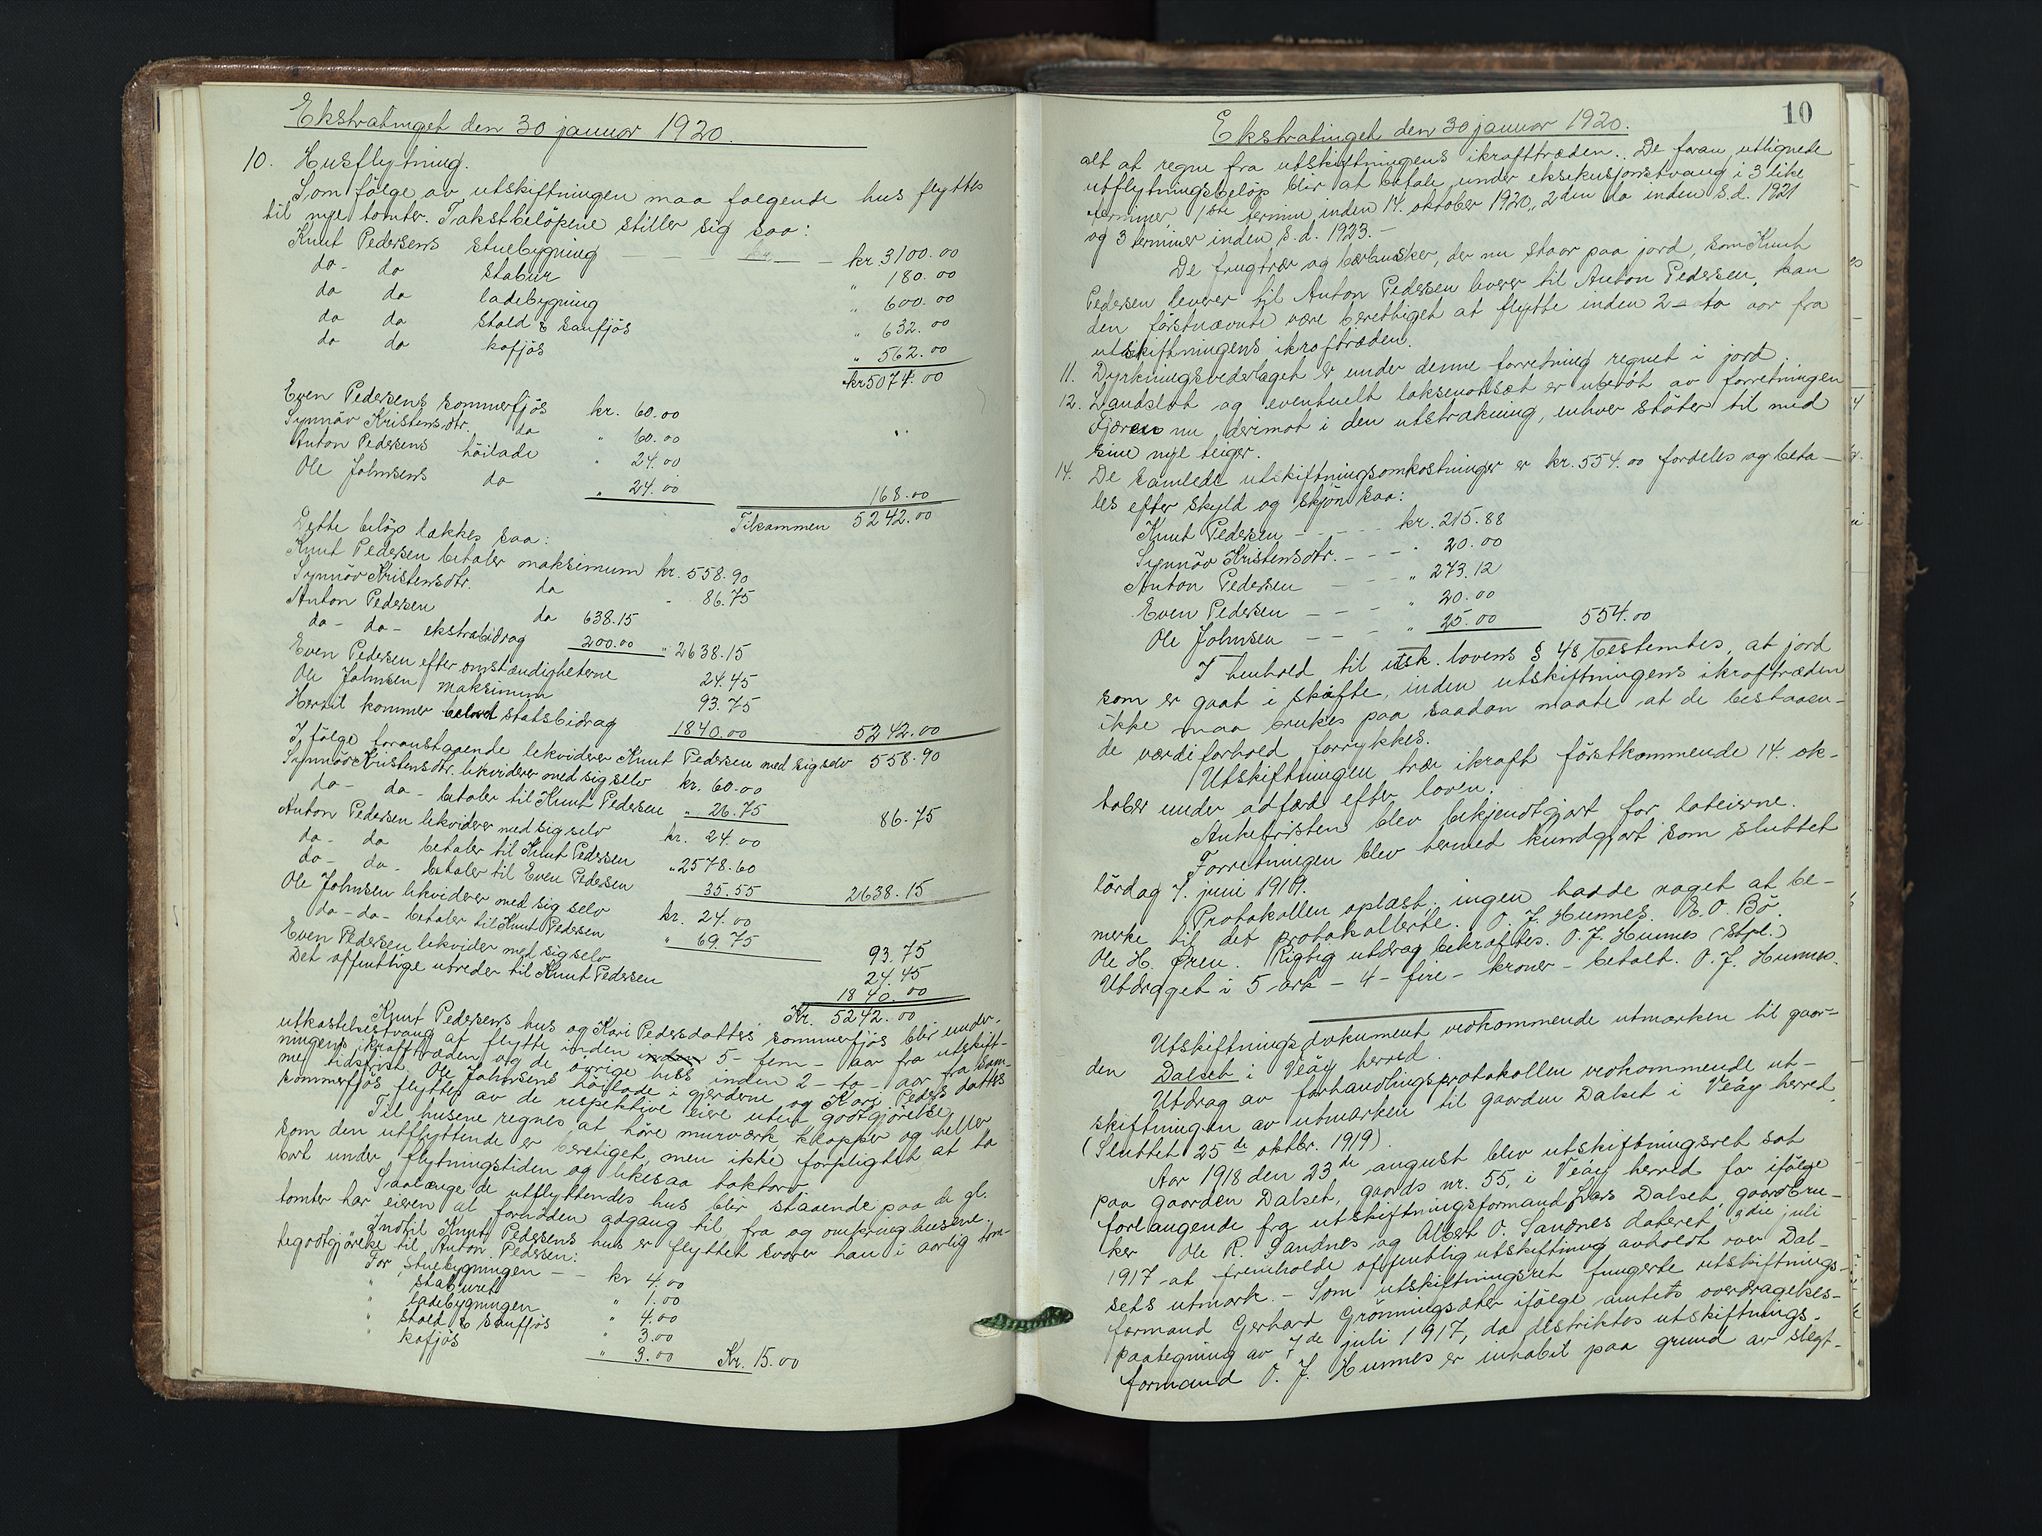 Ekstratinget den 30 januar 1920.
10. Husflytning.
Som følge av utskiftningen maa følgende hus flyttes
til nye tomter. Takstbeløpene stiller sig saa:
Knut Pedersens stuebygning — — kr. — — kr. 3100.00
do- do stabur " 180.00
do do ladebygning " 600.00
do do stald & saufjös " 632.00
do do kofjös " 562.00
kr 5074.00
Even Pedersens sommerfjös kr. 60.00
Synnöv Kristensdtr. do " 60.00
Anton Pedersens höilade " 24.00
Ole Johnsens do " 24.00 168.00
Tilsammen 5242.00
Dette beløp dækkes saa:
Knut Pedersen betaler maksimum kr. 558.90
Synnöv Kristensdtr. do " 86.75
Anton Pedersen do 638.15
do- do- ekstrabidrag 200.00 " 2638.15
Even Pedersen efter omstændigheterne 24.45
Ole Johnsen maksimum 93.75
Hertil kommer statsbidrag 1840.00 5242.00
I følge foranstaaende likviderer Knut Pedersen med sig selv 558.90
Synnöv Kristensdtr. likviderer med sig selv kr. 60.00
do- do- betaler til Knut Pedersen " 26.75 86.75
Anton Pedersen likviderer med sig selv kr. 24.00
do- do betaler til Knut Pedersen " 2578.60
do- do- betaler til Even Pedersen 35.55 2638.15
Ole Johnsen likviderer med sig selv kr. 24.00
do-do- betaler til Knut Pedersen " 69.75 93.75
Even Pedersen likvider med sig selv 24.45
Det offentlige utreder til Knut Pedersen 1840.00
Kr. 5242.00
Knut Pedersens hus og Kari Pedersdatters sommerfjös blir under
utkastelsestvang at flytte inden 5- fem- aar fra utskift-
ningens ikrafttræden og de øvrige hus inden 2- to- aar fra sam-
me tidsfrist. Ole Johnsens höilade i gjerdene og Kari Peders datters
sommerfjös flyttes av de respektive eiere uten godtgjørelse.
Til husene regnes at høre murværk, klopper og heller
som den utflyttende er beretiget, men ikke forpligtet at ta
bort under flytningstiden og likesaa taktorv.
Saalænge de utflyttendes hus blir staaende paa de gl.
tomter har eieren al fornöden adgang til, fra og omkring husene.
Indtil Knut Pedersens hus er flyttet svarer han i aarlig tom-
tegodtgjörelse til Anton Pedersen:
For stuebygningen — — kr 4.00
" staburet " 1.00
" ladebygningen " 4.00
" stald & saufjös " 3.00
" kofjös " 3.00 Kr. 15.00
10
Ekstratinget den 30 januar 1920.
alt at regne fra utskiftningens ikrafttræden. De foran utlignede
utflytningsbeløp blir at betale under eksekusjonstvang i 3 like
terminer 1ste termin inden 14. oktober 1920, 2den do inden s.d. 1921
og 3 terminer inden s.d. 1923. —
De frugttrær og bærbusker, der nu staar paa jord, som Knut
Pedersen leverer til Anton Pedersen, kan
den förstnævnte være berettiget at flytte inden 2- to aar fra
utskiftningens ikraftræden.
11. Dyrkningsvederlaget er under denne forretning regnet i jord.
12. Landslot og eventuelt laksenotsæt er uberört av forretningen
Fjæren nu derimot i den utstrækning, enhver støter til med
sine nye teiger.
14. De samlede utskiftningsomkostninger er kr. 554.00 fordeles og beta-
les efter skyld og skjön saa:
Knut Pedersen — — — kr. 215.88
Synnöv Kristensdtr. — — — " 20.00
Anton Pedersen — — — " 273.12
Even Pedersen — — — " 20.00
Ole Johnsen — — — " 25.00 554.00
I henhold til utsk. lovens § 48 bestemtes, at jord
som er gaat i skifte, inden utskiftningens ikraftræden
ikke maa brukes paa saadan maate at de bestaaen-
de værdiforhold forrykkes.
Utskiftningen trær ikraft førstkommende 14. ok-
tober under adfærd efter loven.
Ankefristen blev bekjendtgjort for loteierne.
Forretningen blev hermed kundgjort som sluttet
lördag 7. juni 1919.
Protokollen oplæst, ingen hadde noget at be-
merke til det protokollerte. O. J. Hunnes. E. O. Bö.
Ole H. Øren. Rigtig utdrag bekræftes. O. J. Hunnes (Stpl.)
Utdraget i 5 ark — 4 — fire — kroner — betalt. O. J. Hunnes.
Utskiftningsdokument vedkommende utmarken til gaar-
den Dalset i Veöy herred.
Utdrag av forhandlingsprotokollen vedkommende ut-
skiftningen av utmarken til gaarden Dalset i Veöy herred.
(Sluttet 25de oktbr. 1919).
Aar 1918 den 23de august blev utskiftningsret sat
paa gaarden Dalset, gaards nr. 55, i Veöy herred for ifølge
forlangende fra utskiftningsformand Lars Dalset, gaardbru-
ker Ole R. Sandnes og Albert O. Sandnes dateret 3die juli
1917 at fremholde offentlig utskiftning avholdt over Dal-
sets utmark. — Som utskiftningsret fungerte utskiftnings-
formand Gerhard Grönningsæter ifølge amtets overdragelses-
paategning av 7de juli 1917, da distriktets utskiftnings-
formand O. J. Hunnes er inhabil paa grund av slegt-